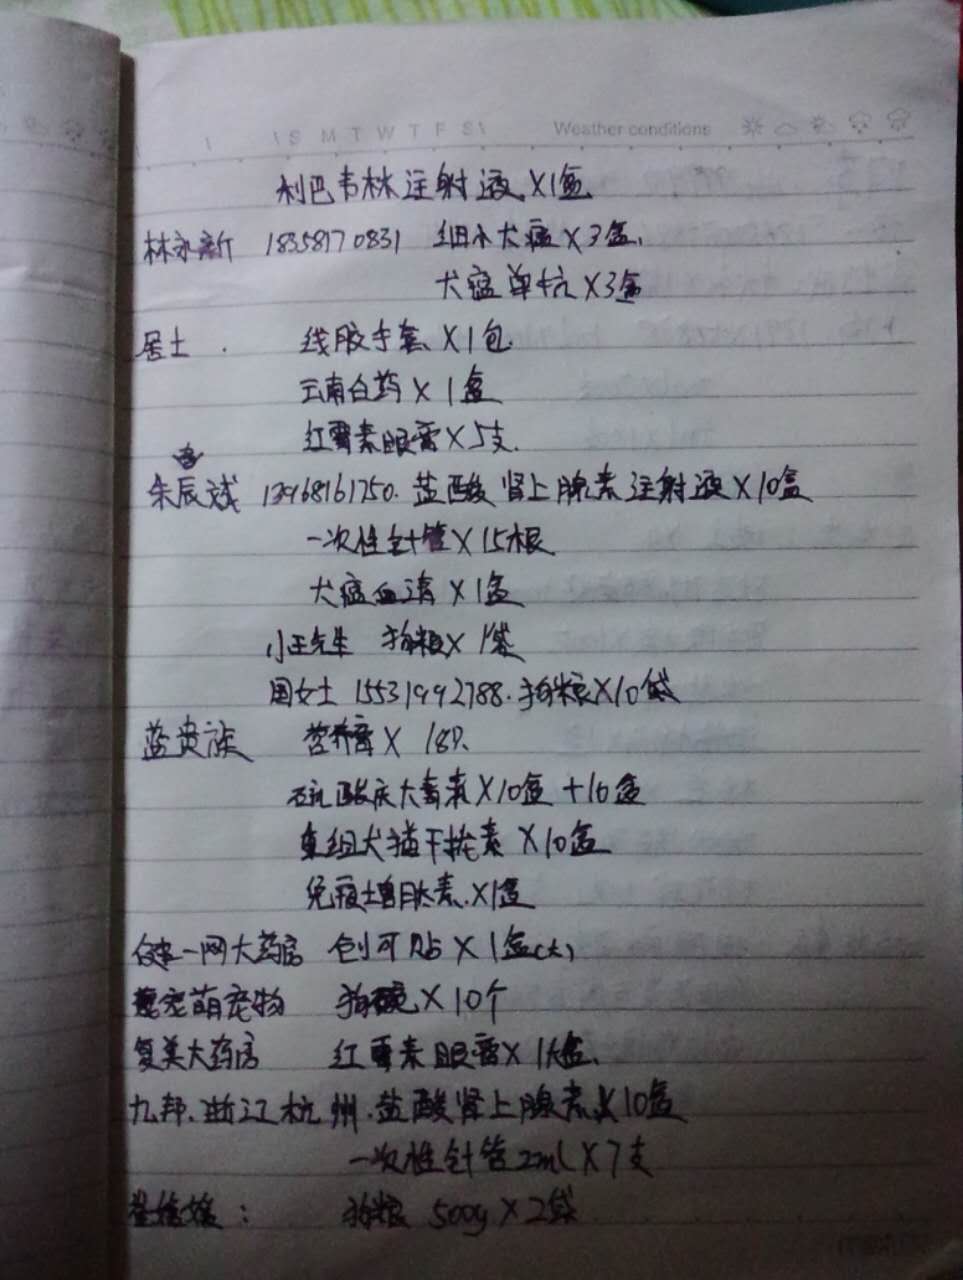 S M T W T F S Weather conditions
利巴韦林注射液X1盒
林永新 18358170831 细小犬瘟X3盒、
犬瘟单抗X3盒
居士. 线胶手套X1包
云南白药X1盒
红霉素眼膏X5支.
朱辰斌 13968161750. 盐酸肾上腺素注射液X10盒
一次性针管X15根
犬瘟血清X1盒
小王先生 狗粮X1袋
周女士 15531992788. 狗粮X10袋
蓝贵族 营养膏X18
硫酸庆大霉素X10盒+10盒
重组犬猫干扰素X10盒
免疫增肽素.X1盒
健一网大药房 创可贴X1盒(大)
宠萌宠物 狗碗X10个
复美大药房 红霉素眼膏X1大盒、
九邦.浙江杭州.盐酸肾上腺素X10盒
一次性针管2ml X7支
狗粮 500g X2袋